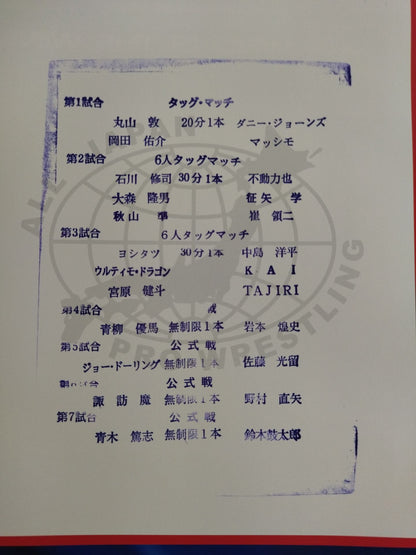 第1試合 タッグ・マッチ
丸山 敦 20分1本 ダニー・ジョーンズ
岡田 佑介 マッシモ
第2試合 6人タッグマッチ
石川 修司 30分1本 不動力也
大森 隆男 征矢 学
秋山 準 崔 領二
第3試合 6人タッグマッチ
ヨシタツ 30分1本 中島 洋平
ウルティモ・ドラゴン KAI
宮原 健斗 TAJIRI
第4試合 戦
青柳 優馬 無制限1本 岩本 煌史
第5試合 公式戦
ジョー・ドーリング 無制限1本 佐藤 光留
試合 公式戦
諏訪魔 無制限1本 野村 直矢
第7試合 公式戦
青木 篤志 無制限1本 鈴木鼓太郎
ALL JAPAN
PRO WRESTLING